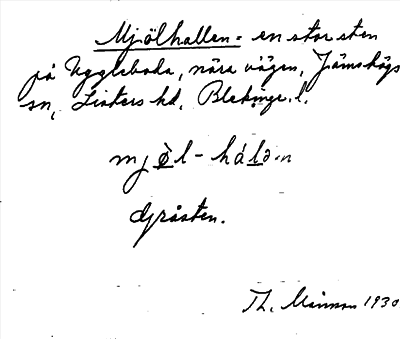 Mjölhallen = en stor sten
på Uggleboda, nära vägen, Jämshögs
sn, Listers hd, Blekinge l.
mjö̀l-hál∂n
Gråsten.
Th. 1930